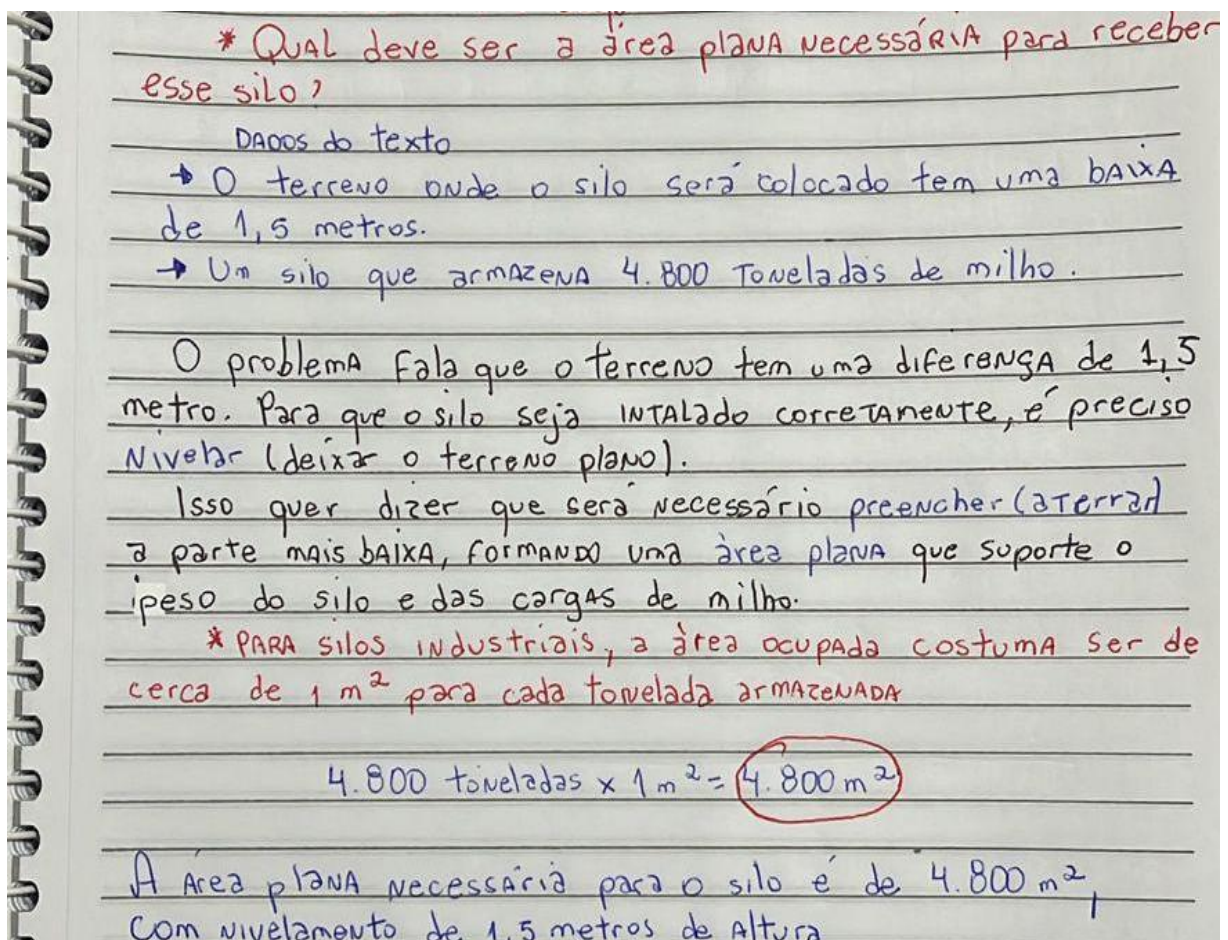 * QUAL deve ser a área plana necessária para receber
esse silo?
DADOS do texto
→ O terreno onde o silo será colocado tem uma baixa
de 1,5 metros.
→ Um silo que armazena 4.800 Toneladas de milho.
O problema Fala que o terreno tem uma diferença de 1,5
metro. Para que o silo seja intalado corretamente, é preciso
Nivelar (deixar o terreno plano).
Isso quer dizer que será necessário preencher (aterrar)
a parte mais baixa, formando uma área plana que suporte o
peso do silo e das cargas de milho.
* PARA silos industriais, a área ocupada costuma ser de
cerca de 1 m² para cada tonelada armazenada
4.800 toneladas x 1 m² = 4.800 m²
A Área plana necessária para o silo é de 4.800 m²,
com nivelamento de 1,5 metros de Altura